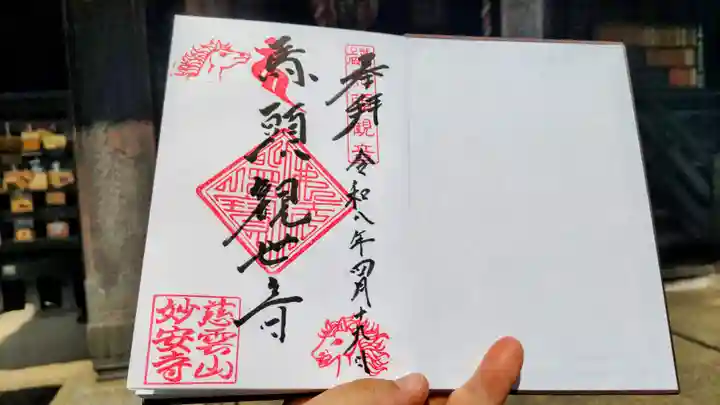 奉拝 令和八年四月十九日
馬頭観世音
慈雲山
妙安寺